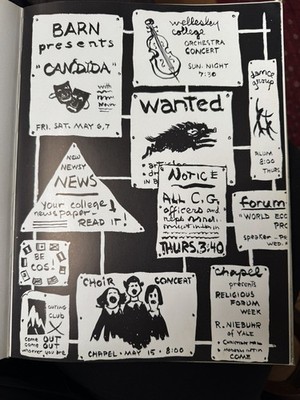 BARN
presents
"CANDIDA"
with
FRI. SAT. MAY 6,7
wellesley
college
ORCHESTRA
CONCERT
SUN. NIGHT
7:30
dance
group
ALUM
8:00
THURS
wanted
articles
dr
in B
NOW
NEWSY
NEWS
Your college
newspaper
READ IT!
NOTICE
ALL C.G.
officers and
THURS. 3:40
forum
"WORLD ECO
speaker - PR
WED.
I
BE
COS!
OUTING
CLUB
come OUT
come OUT
wherever you are
CHOIR CONCERT
CHAPEL · MAY 15 · 8:00
chapel
presents
RELIGIOUS
FORUM
WEEK
R. NIEBUHR
of YALE
COME